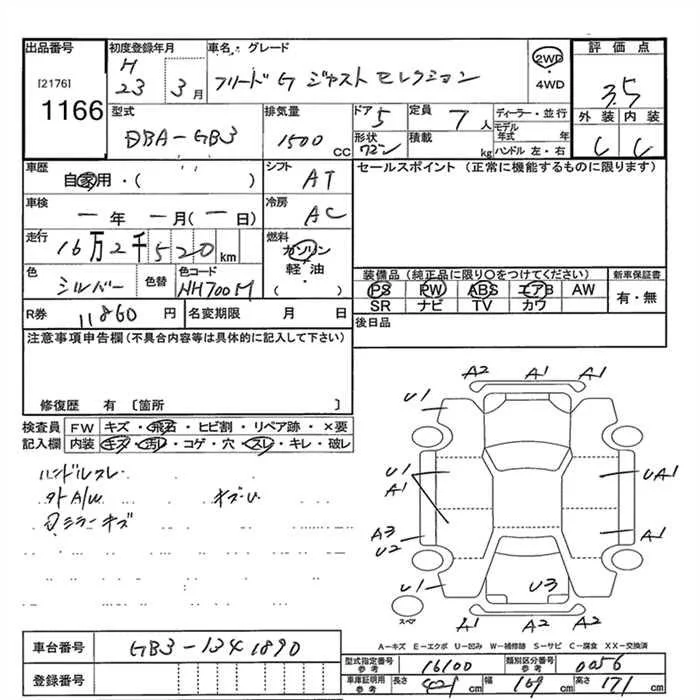 出品番号 初度登録年月 車名・グレード 評価点
[2176] 1166 H 23 3月 フリード G ジャスト セレクション 2WD ・ 4WD 3.5
型式 排気量 ドア 定員 ディーラー・並行 外装 内装
DBA-GB3 1500 CC 5 7人 モデル年式 年 C C
形状 ワゴン 積載 kg ハンドル 左・右
車歴 シフト セールスポイント (正常に機能するものに限ります)
自家用・( ) AT
車検 冷房
一年 一月(一日) AC
走行 燃料
16万2千520km ガソリン
軽・油
( )
色 シルバー 色替 色コード NH700M
装備品(純正品に限り○をつけてください) 新車保証書
PS PW ABS エアB AW 有・無
SR ナビ TV カワ
R券 11860円 名変期限 月 日 後日品
注意事項申告欄(不具合内容等は具体的に記入して下さい)
修復歴 有 〔箇所 〕
検査員 FW キズ・飛石・ヒビ割・リペア跡・×要
記入欄 内装 キズ・汚レ・コゲ・穴・スレ・キレ・破レ
ハンドルスレ
外A/W キズU
ミラーキズ
A2 A1 A1
U1
U1 A1 UA1
A3 U2 A1
U1 U3
A1 A2 A2
スペア
A-キズ E-エクボ U-凹み W-補修跡 S-サビ C-腐食 XX-交換済
車台番号 GB3-1341890
登録番号
型式指定番号 参考 16100 類別区分番号 参考 0056
車庫証明用 参考 長さ 421cm 幅 169cm 高さ 171cm